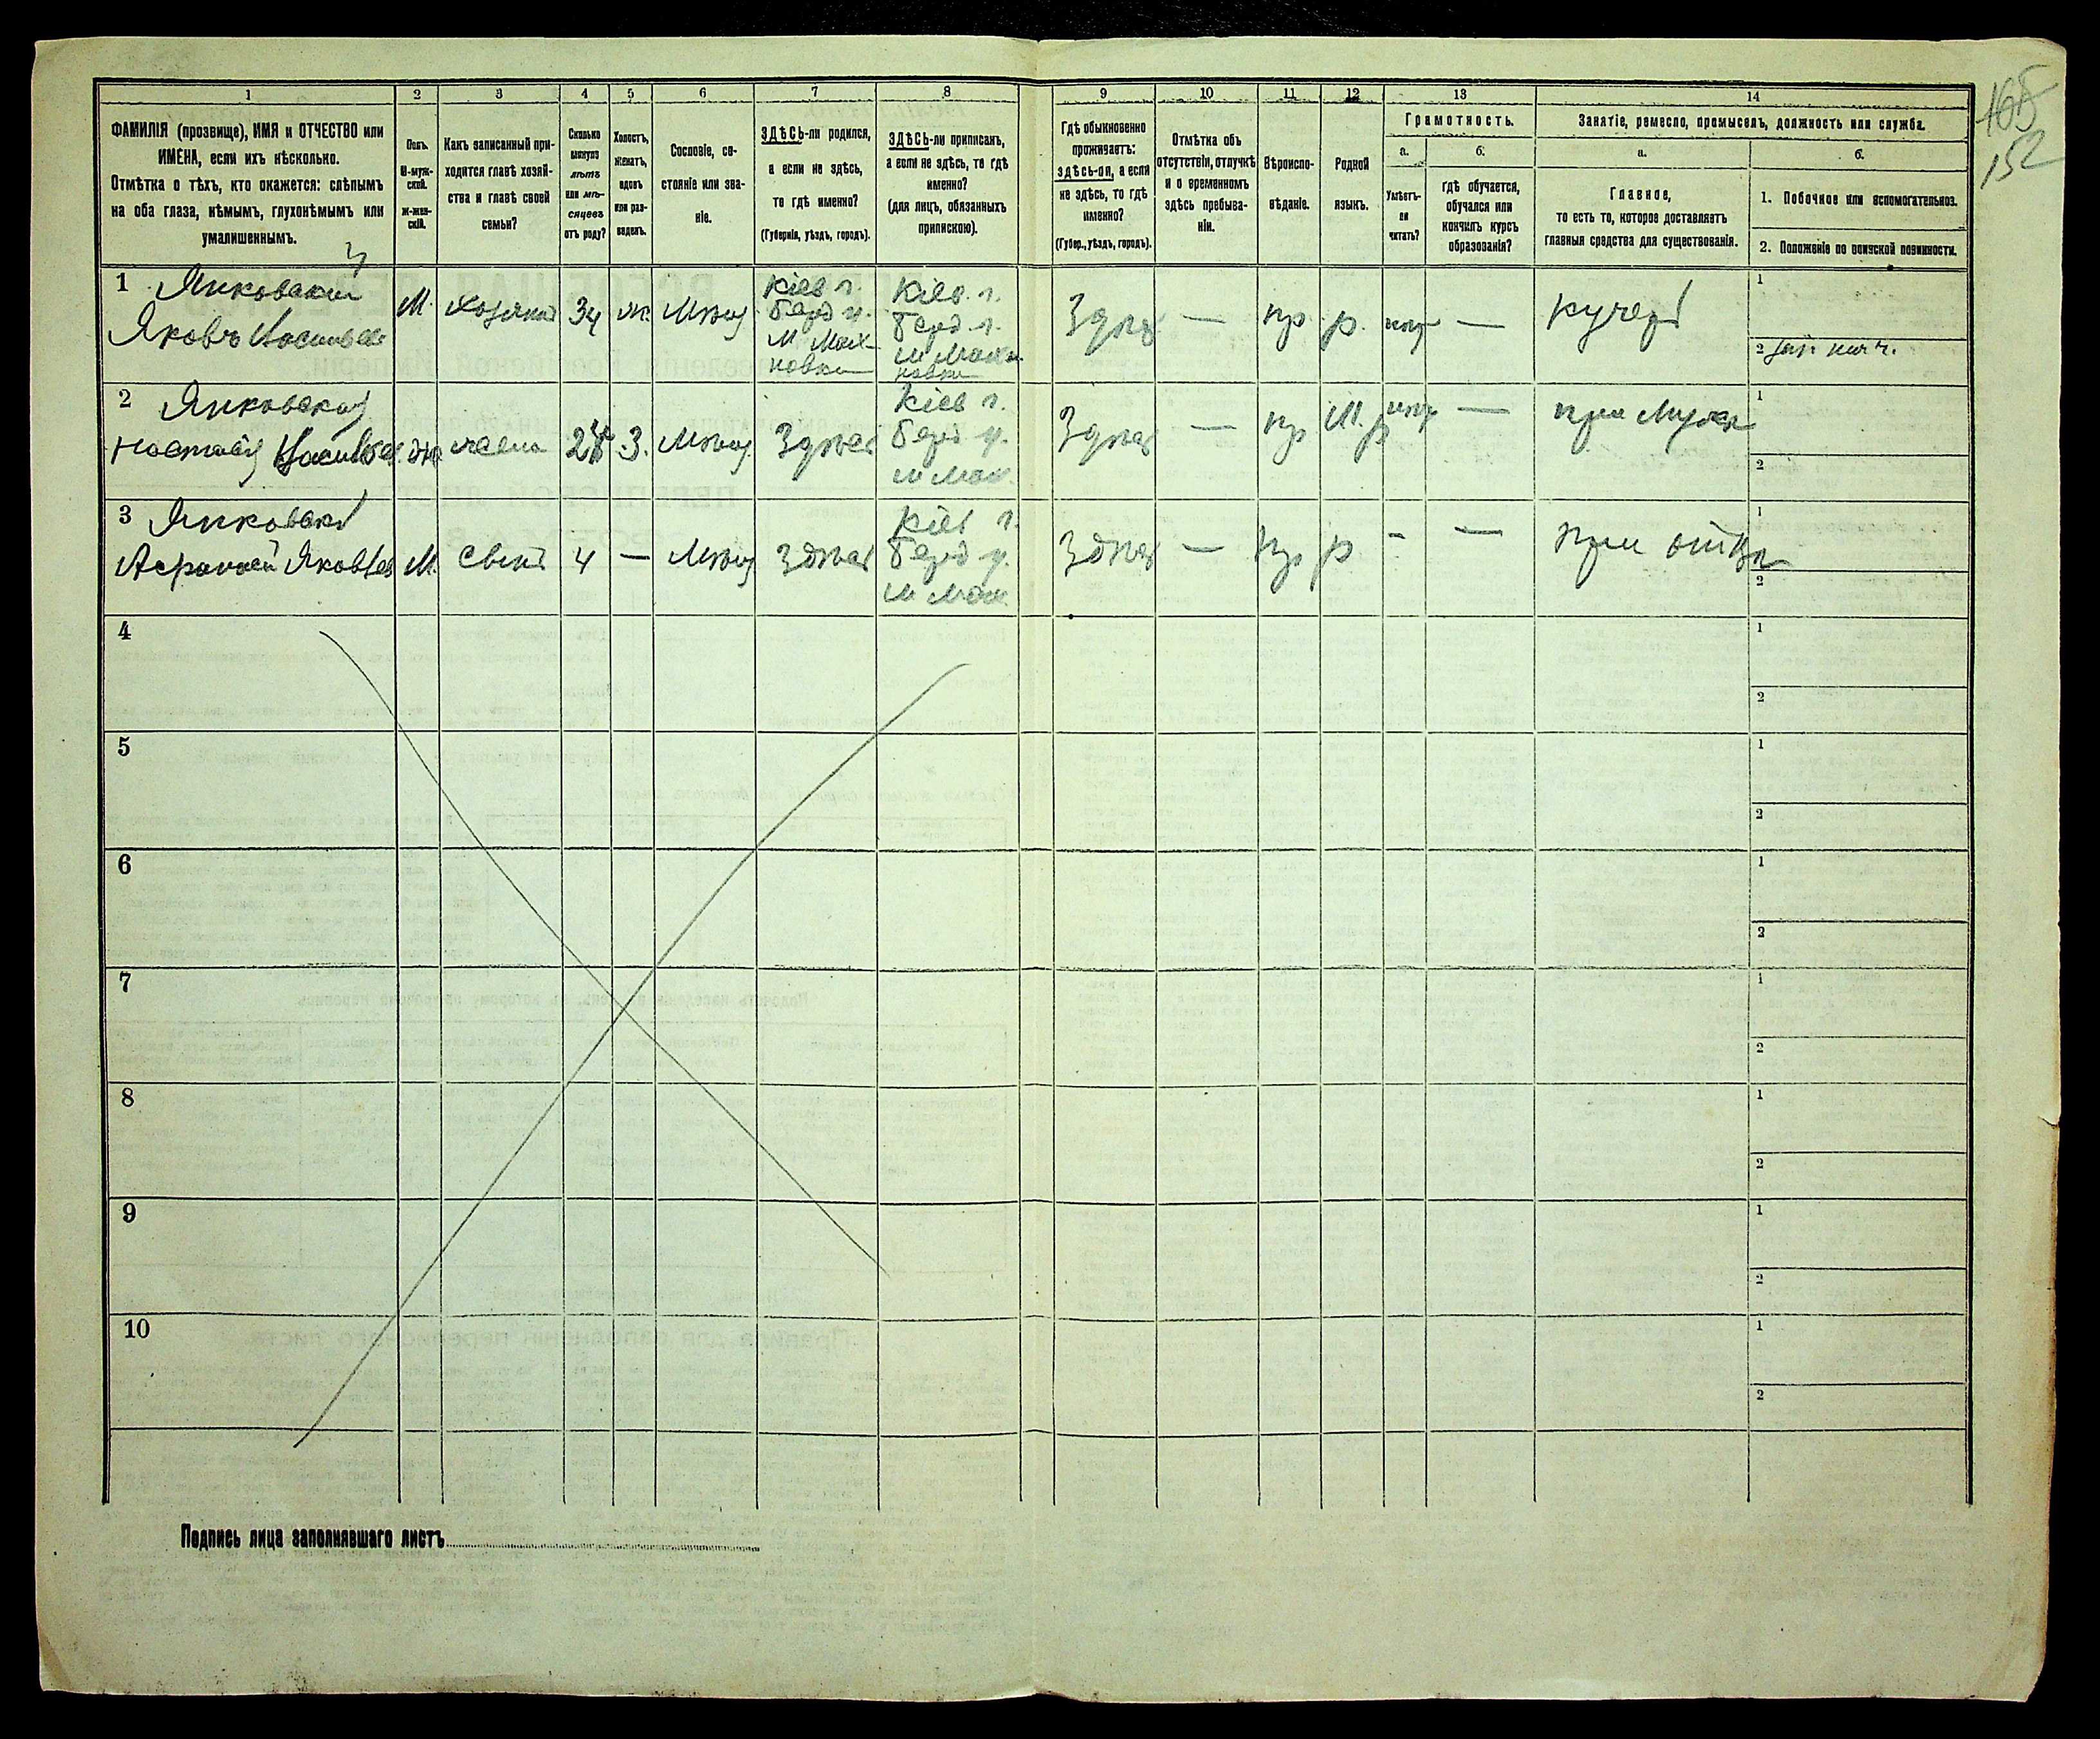 165
152
1 2 3 4 5 6 7 8 9 10 11 12 13 14
ФАМИЛІЯ (прозвище), ИМЯ и ОТЧЕСТВО или
ИМЕНА, если ихъ нѣсколько.
Отмѣтка о тѣхъ, кто окажется: слѣпымъ
на оба глаза, нѣмымъ, глухонѣмымъ или
умалишеннымъ.
Полъ.
М-муж-
ской.
Ж-жен-
скій.
Какъ записанный при-
ходится главѣ хозяй-
ства и главѣ своей
семьи?
Сколько
минуло
лѣтъ
или мѣ-
сяцевъ
отъ роду?
Холостъ,
женатъ,
вдовъ
или раз-
веденъ.
Сословіе, со-
стояніе или зва-
ніе.
ЗДѢСЬ-ли родился,
а если не здѣсь,
то гдѣ именно?
(Губернія, уѣздъ, городъ).
ЗДѢСЬ-ли приписанъ,
а если не здѣсь, то гдѣ
именно?
(для лицъ, обязанныхъ
припискою).
Гдѣ обыкновенно
проживаетъ:
здѣсь-ли, а если
не здѣсь, то гдѣ
именно?
(Губер., уѣздъ, городъ).
Отмѣтка объ
отсутствіи, отлучкѣ
и о временномъ
здѣсь пребыва-
ніи.
Вѣроиспо-
вѣданіе.
Родной
языкъ.
Грамотность.
а.
Умѣетъ-
ли
читать?
б.
гдѣ обучается,
обучался или
кончилъ курсъ
образованія?
Занятіе, ремесло, промыселъ, должность или служба.
а.
Главное,
то есть то, которое доставляетъ
главныя средства для существованія.
б.
1. Побочное или вспомогательное.
2. Положеніе по воинской повинности.
1 Янковскій
Яковъ
М. Хозяинъ 34 ж. Мѣщ
Кіев г.
Берд у.
М Мах
новки
Кіев. г.
Берд. г.
м Махн
новки
Здѣсь — пр. р. — кучеръ
1
2
2 Янковская
М 3. Мѣщ Здѣсь
Кіев г.
Берд у.
м Мах.
Здѣсь — пр — при Мужѣ
1
2
3 Янковскі
М. сынъ 4 — Мѣщ Здѣсь
Кіев г.
Берд у.
м Мах.
Здѣсь — пр р - — при отцѣ
1
2
4 1
2
5 1
2
6 1
2
7 1
2
8 1
2
9 1
2
10 1
2
Подпись лица заполнявшаго листъ